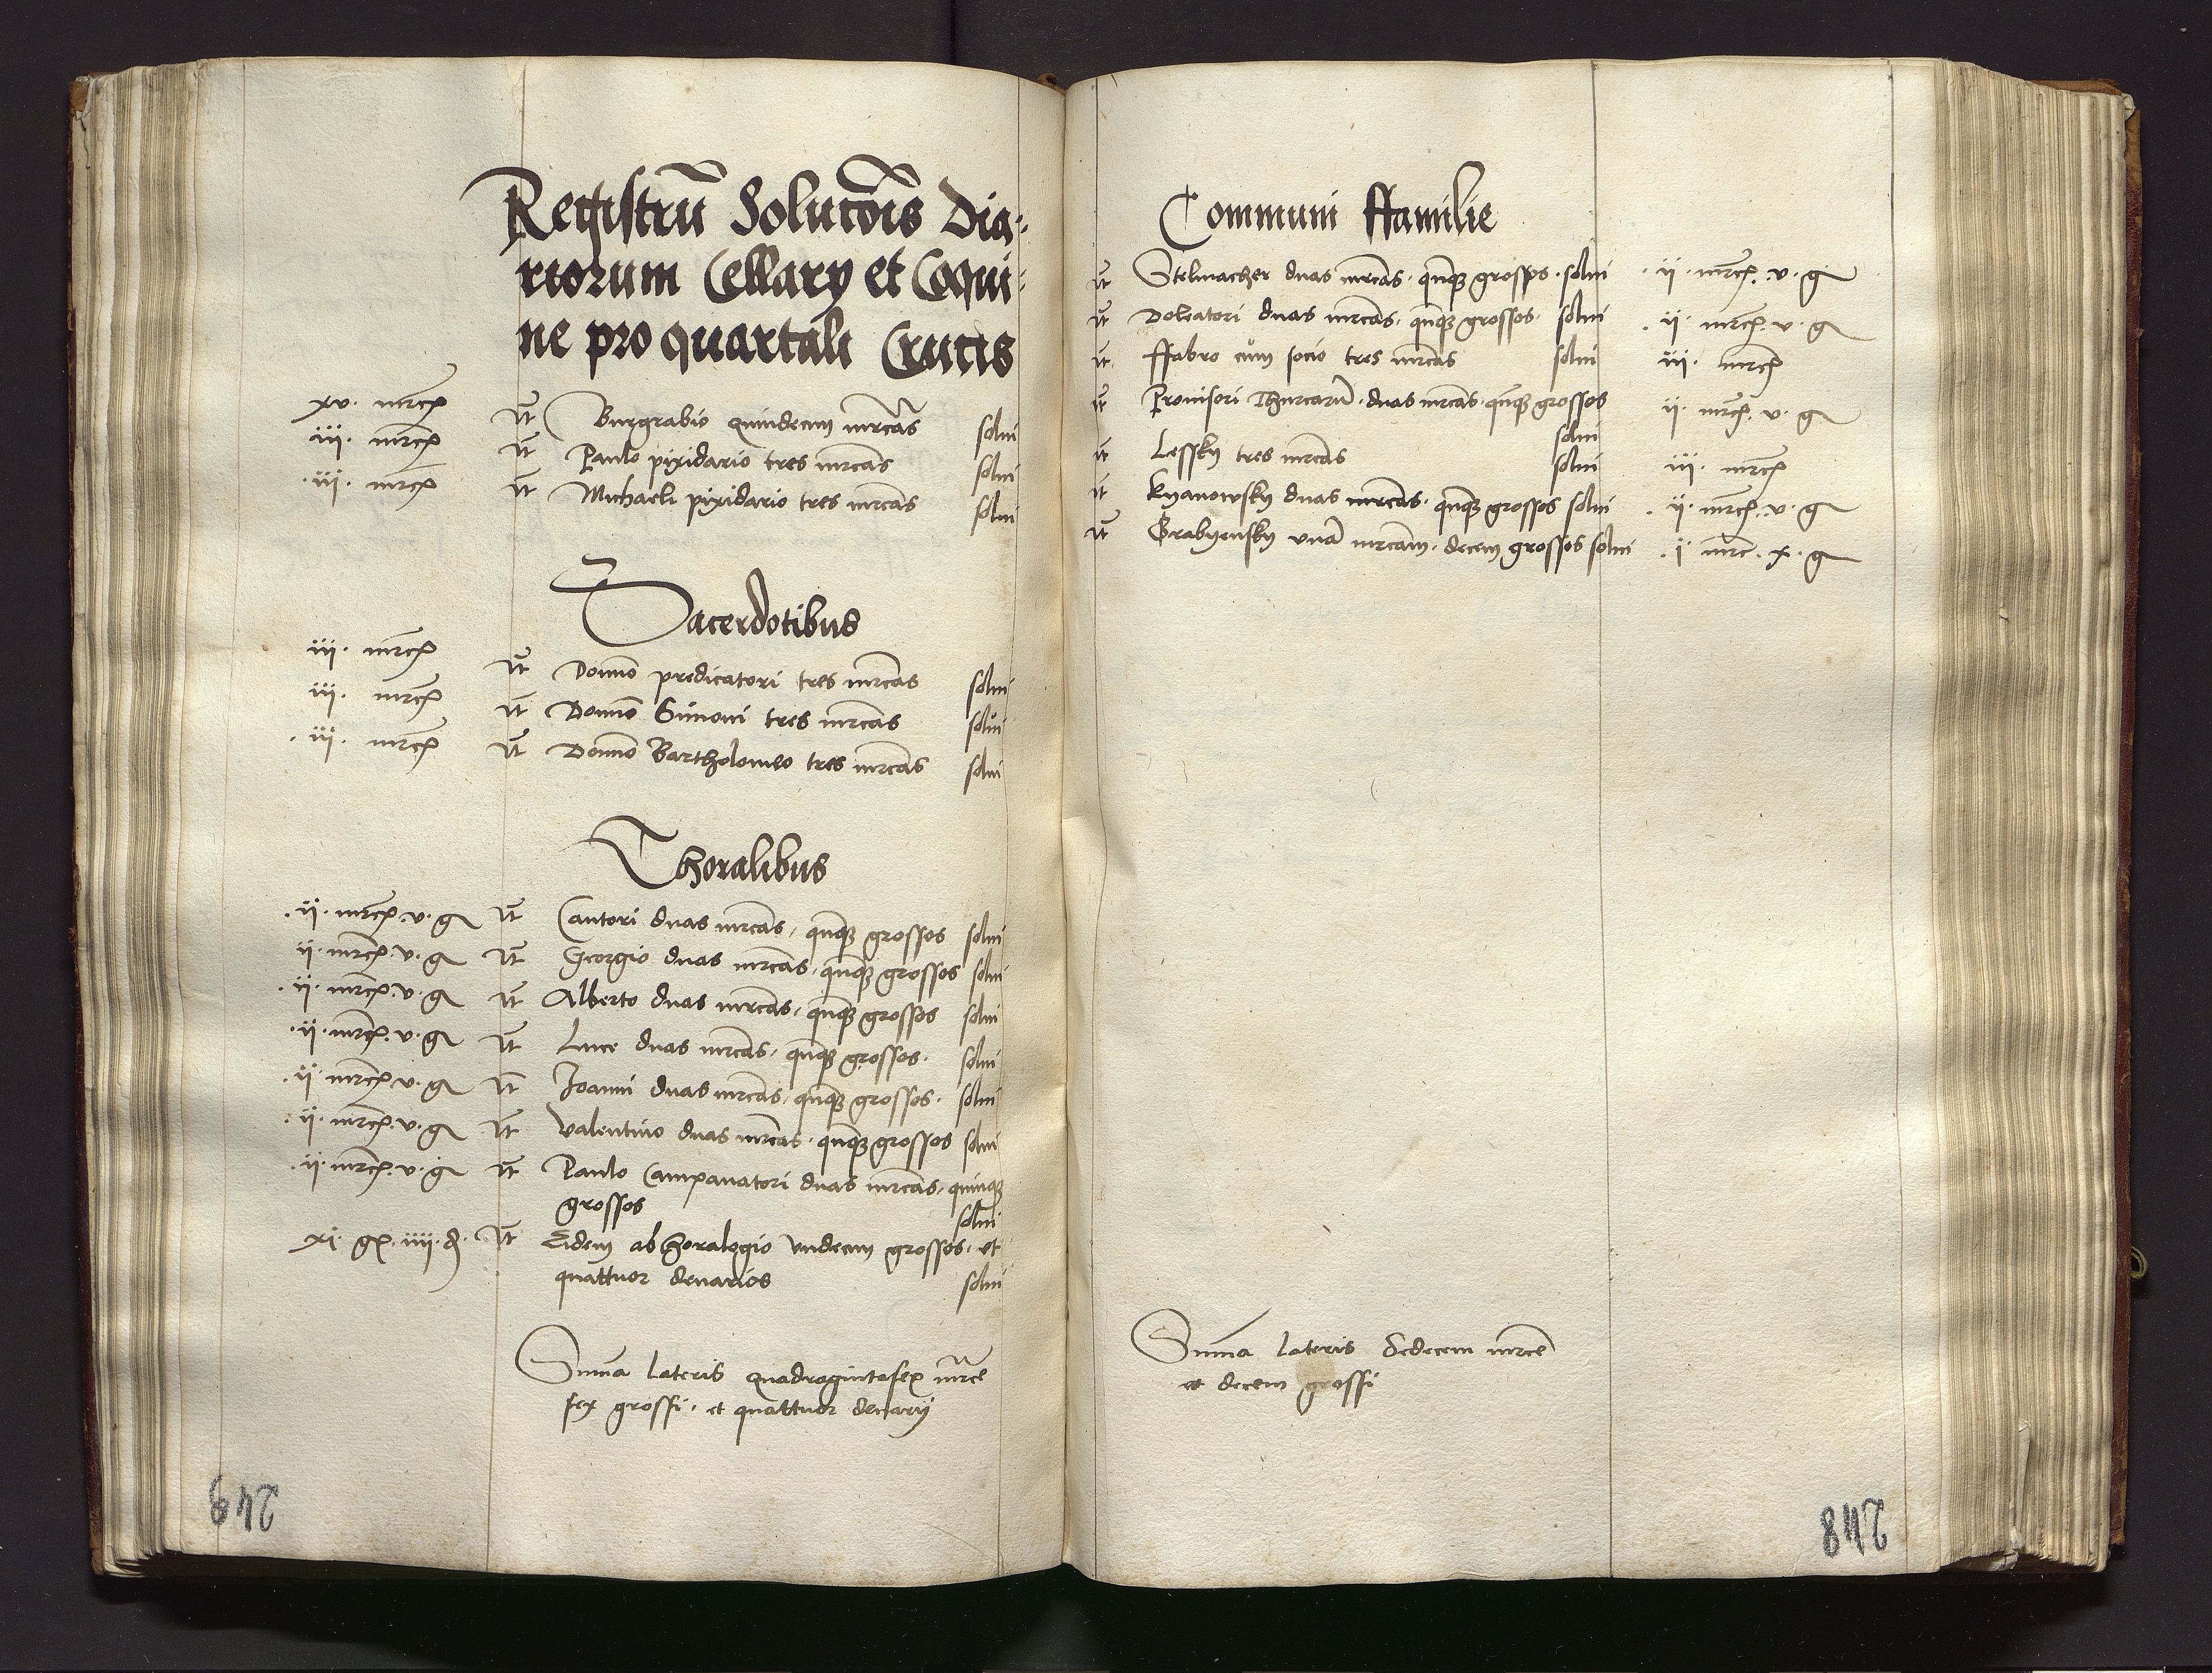 Registrū Solutōis Dia-
riorum Cellarÿ et Coqui-
ne pro quartali Crucis
xv. mrcȩ It Burgrabio quindecim mrcas solui
iii. mrcȩ It Paulo pixidario tres mrcas solui
.iii. mrcȩ It Michaeli pixidario tres mrcas solui
Sacerdotibus
iii. mrcȩ It Domino predicatori tres mrcas solui
iii. mrcȩ It Domino Simoni tres mrcas solui
.iii. mrcȩ It Domino Bartholomeo tres mrcas solui
Choralibus
.ii. mrcȩ. v. g It Cantori duas mrcas, quīqȝ grossos solui
ii. mrcȩ. v. g It Georgio duas mrcas, quīqȝ grossos solui
.ii. mrcȩ. v. g It Alberto duas mrcas, quīqȝ grossos solui
.ii. mrcȩ. v. g It Luce duas mrcas, quīqȝ grossos. solui
.ii. mrcȩ v. g It Joanni duas mrcas, quīqȝ grossos. solui
.ii. mrcȩ. v. g It Valentino duas mrcas, quīqȝ grossos solui
.ii. mrcȩ. v. g It Paulo Campanatori duas mrcas, quinqȝ
grossos solui
xi. gȩ. iiii. d. It Eidem ab horalogio vndecim grossos, et
quattuor denarios solui
Suma lateris quadragintasex mrce
sex grossi, et quattuor denarÿ
249
Communi ffamilie
It Stelmacher duas mrcas, quīqȝ grossos. solui .ii. mrcȩ. v. g
It Doleatori duas mrcas, quīqȝ grossos. solui .ii. mrcȩ. v. g
It ffabro cum socio tres mrcas solui iii. mrcȩ
It Prouisori Thurcarū. duas mrcas, quīqȝ grossos ii. mrcȩ. v. g
solui
It Lessky tres mrcas solui iii. mrcȩ
It Kyanowsky duas mrcas, quīqȝ grossos solui .ii. mrcȩ. v. g
It Grabyensky vnā mrcam. decem grossos solui .i. mrc. x. g
Suma lateris sedecem mrce
et decem grossi
248